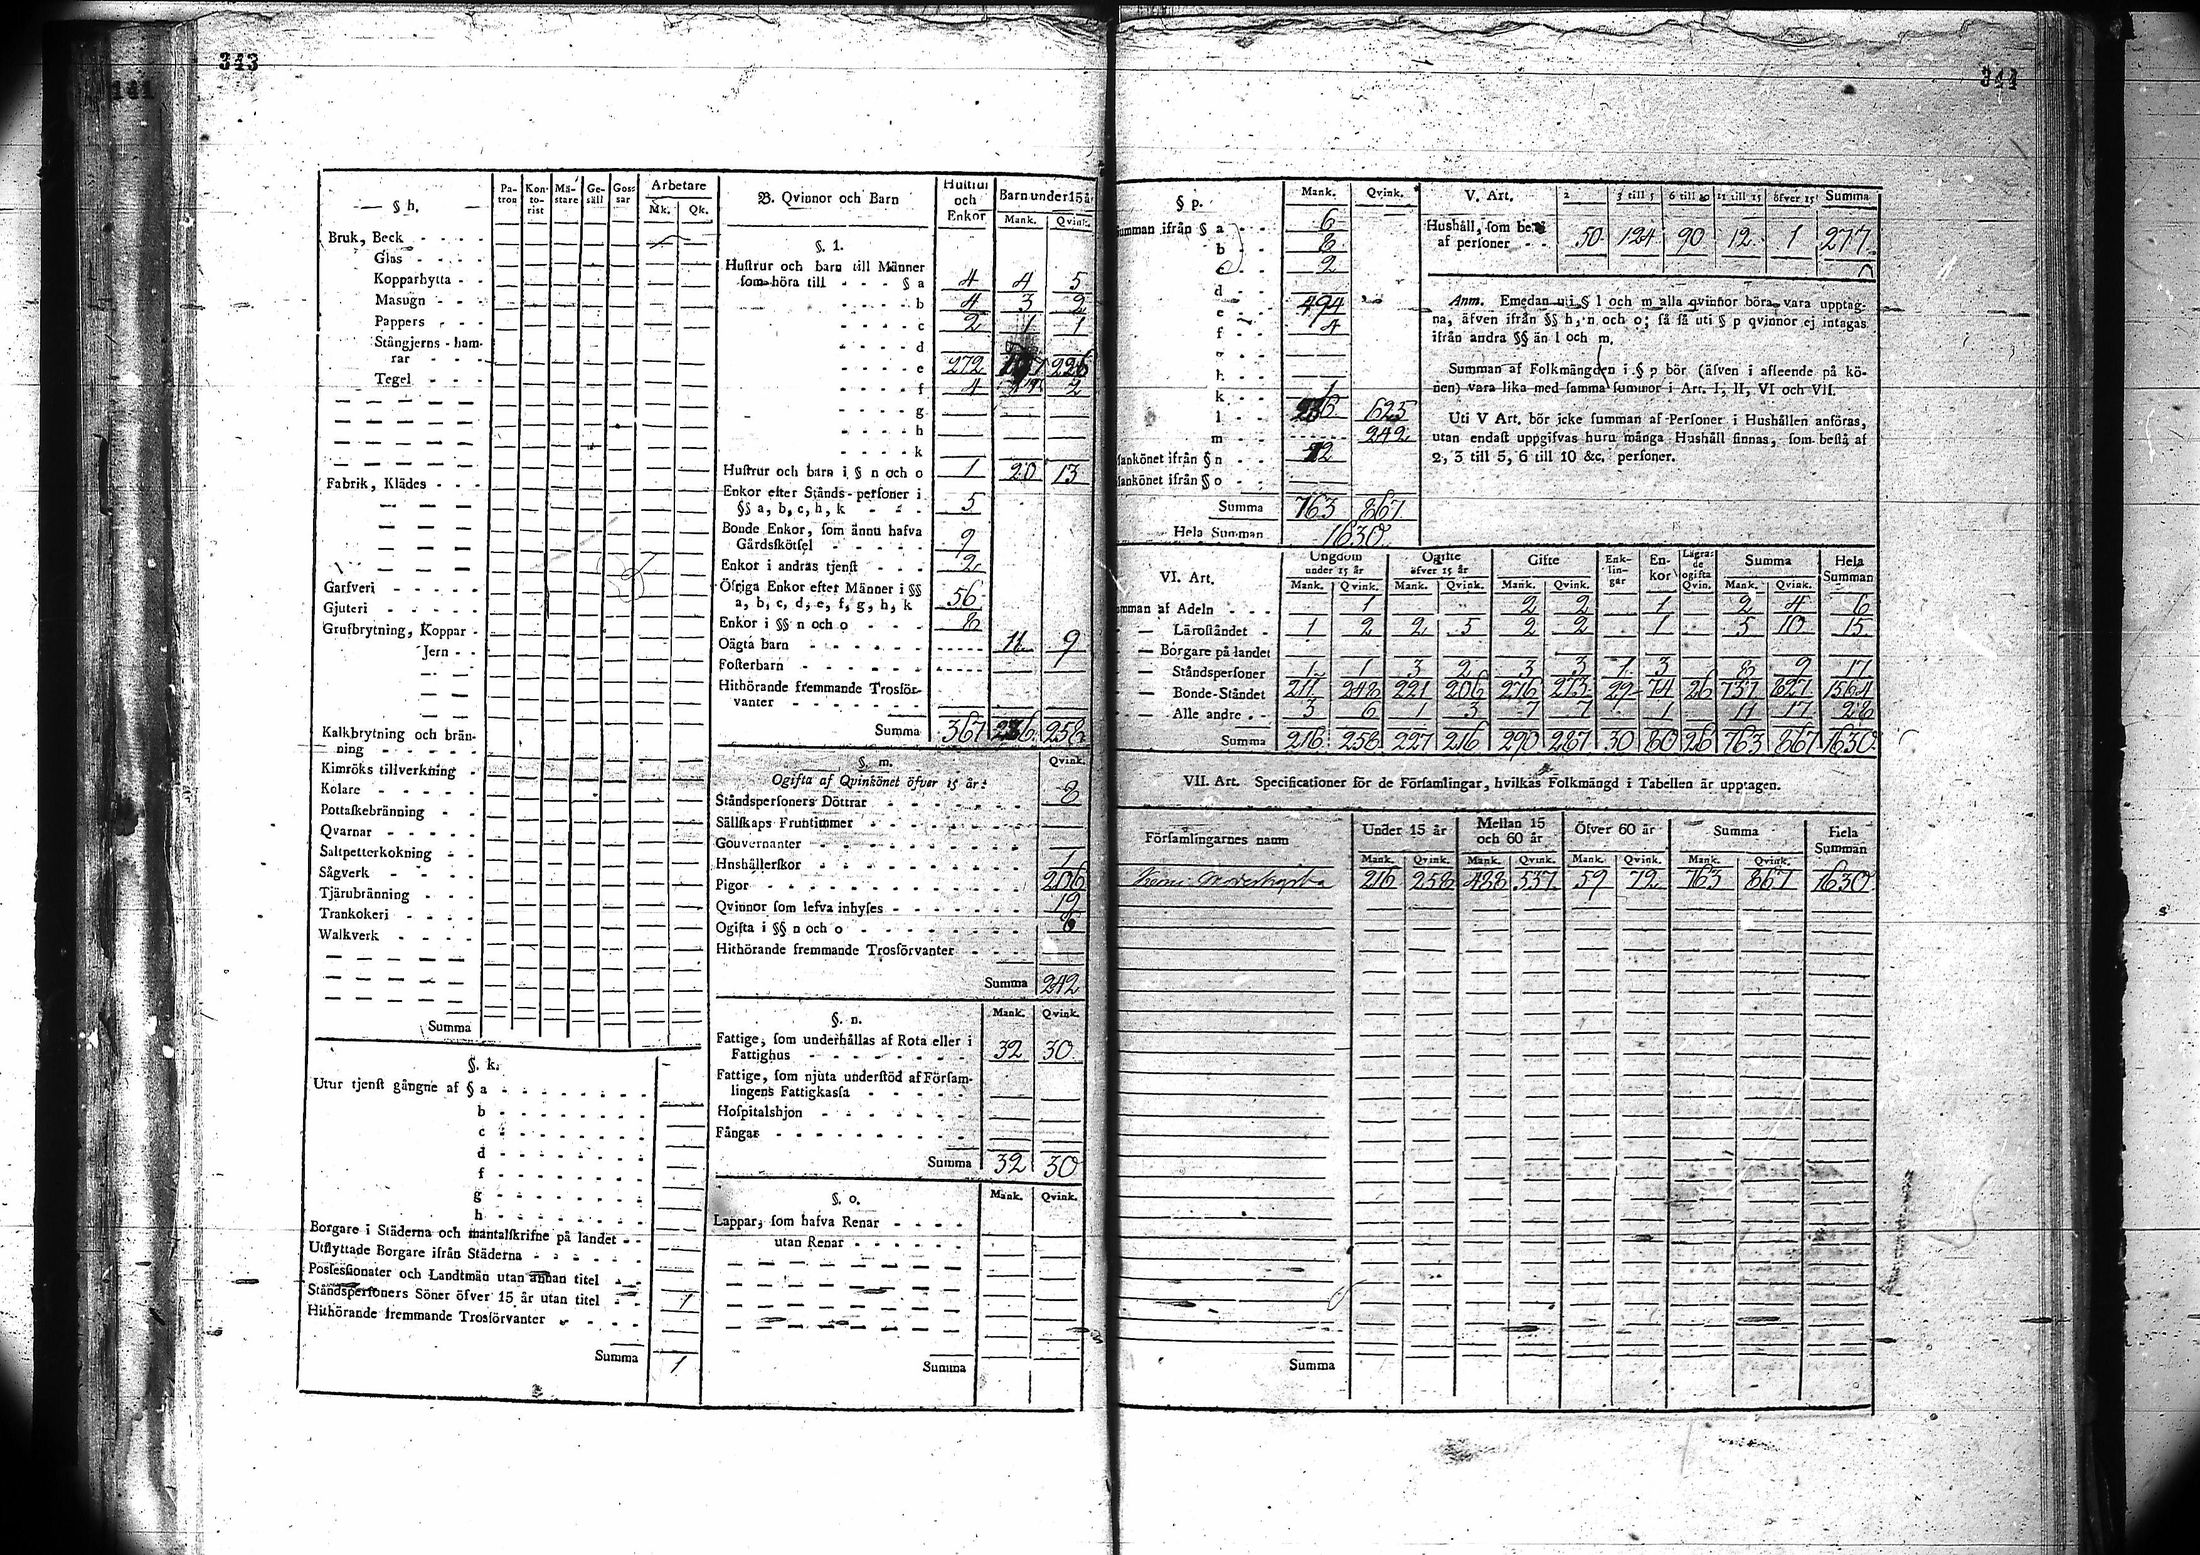 343
141
344
— § h. —
Pa-tron Kon-to-rist Mä-stare Ge-säll Gos-sar Arbetare Mk. Qk.
Bruk, Beck
Glas
Kopparhytta
Masugn
Pappers
Stångjerns-ham-
rar
Tegel
Fabrik, Klädes
Garfveri
Gjuteri
Grufbrytning, Koppar
Jern
Kalkbrytning och brän-
ning
Kimröks tillverkning
Kolare
Pottaskebränning
Qvarnar
Saltpetterkokning
Sågverk
Tjärubränning
Trankokeri
Walkverk
Summa
§. k.
Utur tjenst gångne af § a
b
c
d
f
g
h
Borgare i Städerna och mantalskrifne på landet
Utflyttade Borgare ifrån Städerna
Possessionater och Landtmän utan annan titel
Ståndspersoners Söner öfver 15 år utan titel 1
Hithörande fremmande Trosförvanter
Summa 1
B. Qvinnor och Barn Hustrur och Enkor Barn under 15 år Mank. Qvink.
§. l.
Hustrur och barn till Männer
som höra till § a 4 4 5
b 4 3 2
c 2 1 1
d
e 272 226
f 4 2
g
h
k
Hustrur och barn i § n och o 1 20 13
Enkor efter Stånds-personer i
§§ a, b, c, h, k 5
Bonde Enkor, som ännu hafva
Gårdsskötsel 9
Enkor i andras tjenst 2
Öfriga Enkor efter Männer i §§
a, b, c, d, e, f, g, h, k 56
Enkor i §§ n och o 8
Oägta barn 11 9
Fosterbarn
Hithörande fremmande Trosför-
vanter
Summa 367 258
§. m. Qvink.
Ogifta af Qvinkönet öfver 15 år:
Ståndspersoners Döttrar 8
Sällskaps Fruntimmer
Gouvernanter
Hushållerskor 1
Pigor 206
Qvinnor som lefva inhyses 19
Ogifta i §§ n och o 8
Hithörande fremmande Trosförvanter
Summa 242
§. n. Mank. Qvink.
Fattige, som underhållas af Rota eller i
Fattighus 32 30
Fattige, som njuta understöd af Försam-
lingens Fattigkassa
Hospitalshjon
Fångar
Summa 32 30
§. o. Mank. Qvink.
Lappar, som hafva Renar
utan Renar
Summa
§ p. Mank. Qvink.
Summan ifrån § a 6
b 8
c 2
d
e 494
f 4
g
h
k 1
l 625
m 242
Mankönet ifrån § n
Mankönet ifrån § o
Summa 763 867
Hela Summan 1630
V. Art. 2 3 till 5 6 till 10 11 till 15 öfver 15 Summa
Hushåll, som bestå
af personer 50 124 90 12 1 277
Anm. Emedan uti § l och m alla qvinnor böra vara upptag-
na, äfven ifrån §§ h, n och o; så få uti § p qvinnor ej intagas
ifrån andra §§ än l och m.
Summan af Folkmängden i § p bör (äfven i afseende på kö-
nen) vara lika med samma summor i Art. I, II, VI och VII.
Uti V Art. bör icke summan af Personer i Hushållen anföras,
utan endast uppgifvas huru många Hushåll finnas, som bestå af
2, 3 till 5, 6 till 10 &c. personer.
VI. Art. Ungdom under 15 år Ogifte öfver 15 år Gifte Enk-lin-gar En-kor Lägra-de ogifta Qvin. Summa Hela Summan
Mank. Qvink. Mank. Qvink. Mank. Qvink. Mank. Qvink.
Summan af Adeln 1 2 2 1 2 4 6
— Läroståndet 1 2 2 5 2 2 1 5 10 15
— Borgare på landet
— Ståndspersoner 1 1 3 2 3 3 1 3 8 9 17
— Bonde-Ståndet 211 248 221 206 276 273 29 74 26 737 827 1564
— Alle andre 3 6 1 3 7 7 1 11 17 28
Summa 216 258 227 216 290 287 30 80 26 763 867 1630
VII. Art. Specificationer för de Församlingar, hvilkas Folkmängd i Tabellen är upptagen.
Församlingarnes namn Under 15 år Mellan 15 och 60 år Öfver 60 år Summa Hela Summan
Mank. Qvink. Mank. Qvink. Mank. Qvink. Mank. Qvink.
216 258 488 537 59 72 763 867 1630
Summa